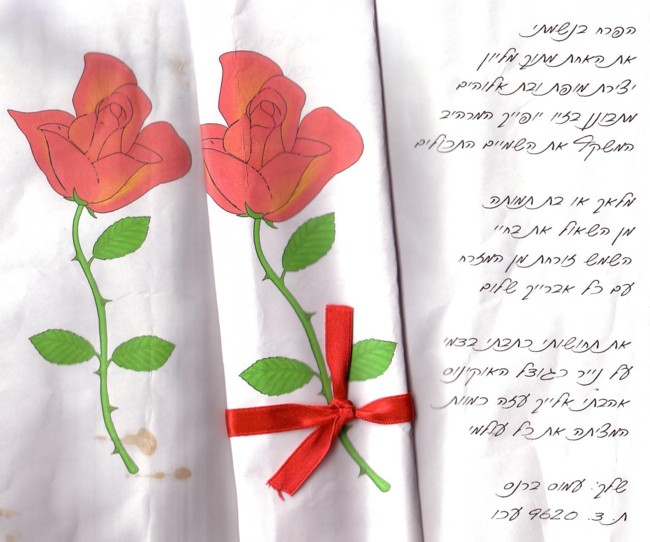 הפרח בנשמתי
את האחת מתוך מליון
יצירת מופת ובת אלוהים
מתבונן בזיו יופייך המרהיב
המשקף את השמיים התכולים
מלאך או בת תמותה
מן השאול את בחיי
השמש זורחת מן המזרח
עם כל אברייך שלום
את תחושותי כתבתי בדמי
על נייר כגודל האוקינוס
אהבתי אלייך עזה כמוות
המציתה את כל עולמי
שלך: עמוס ברנס
ת. צ. 9620 עכו